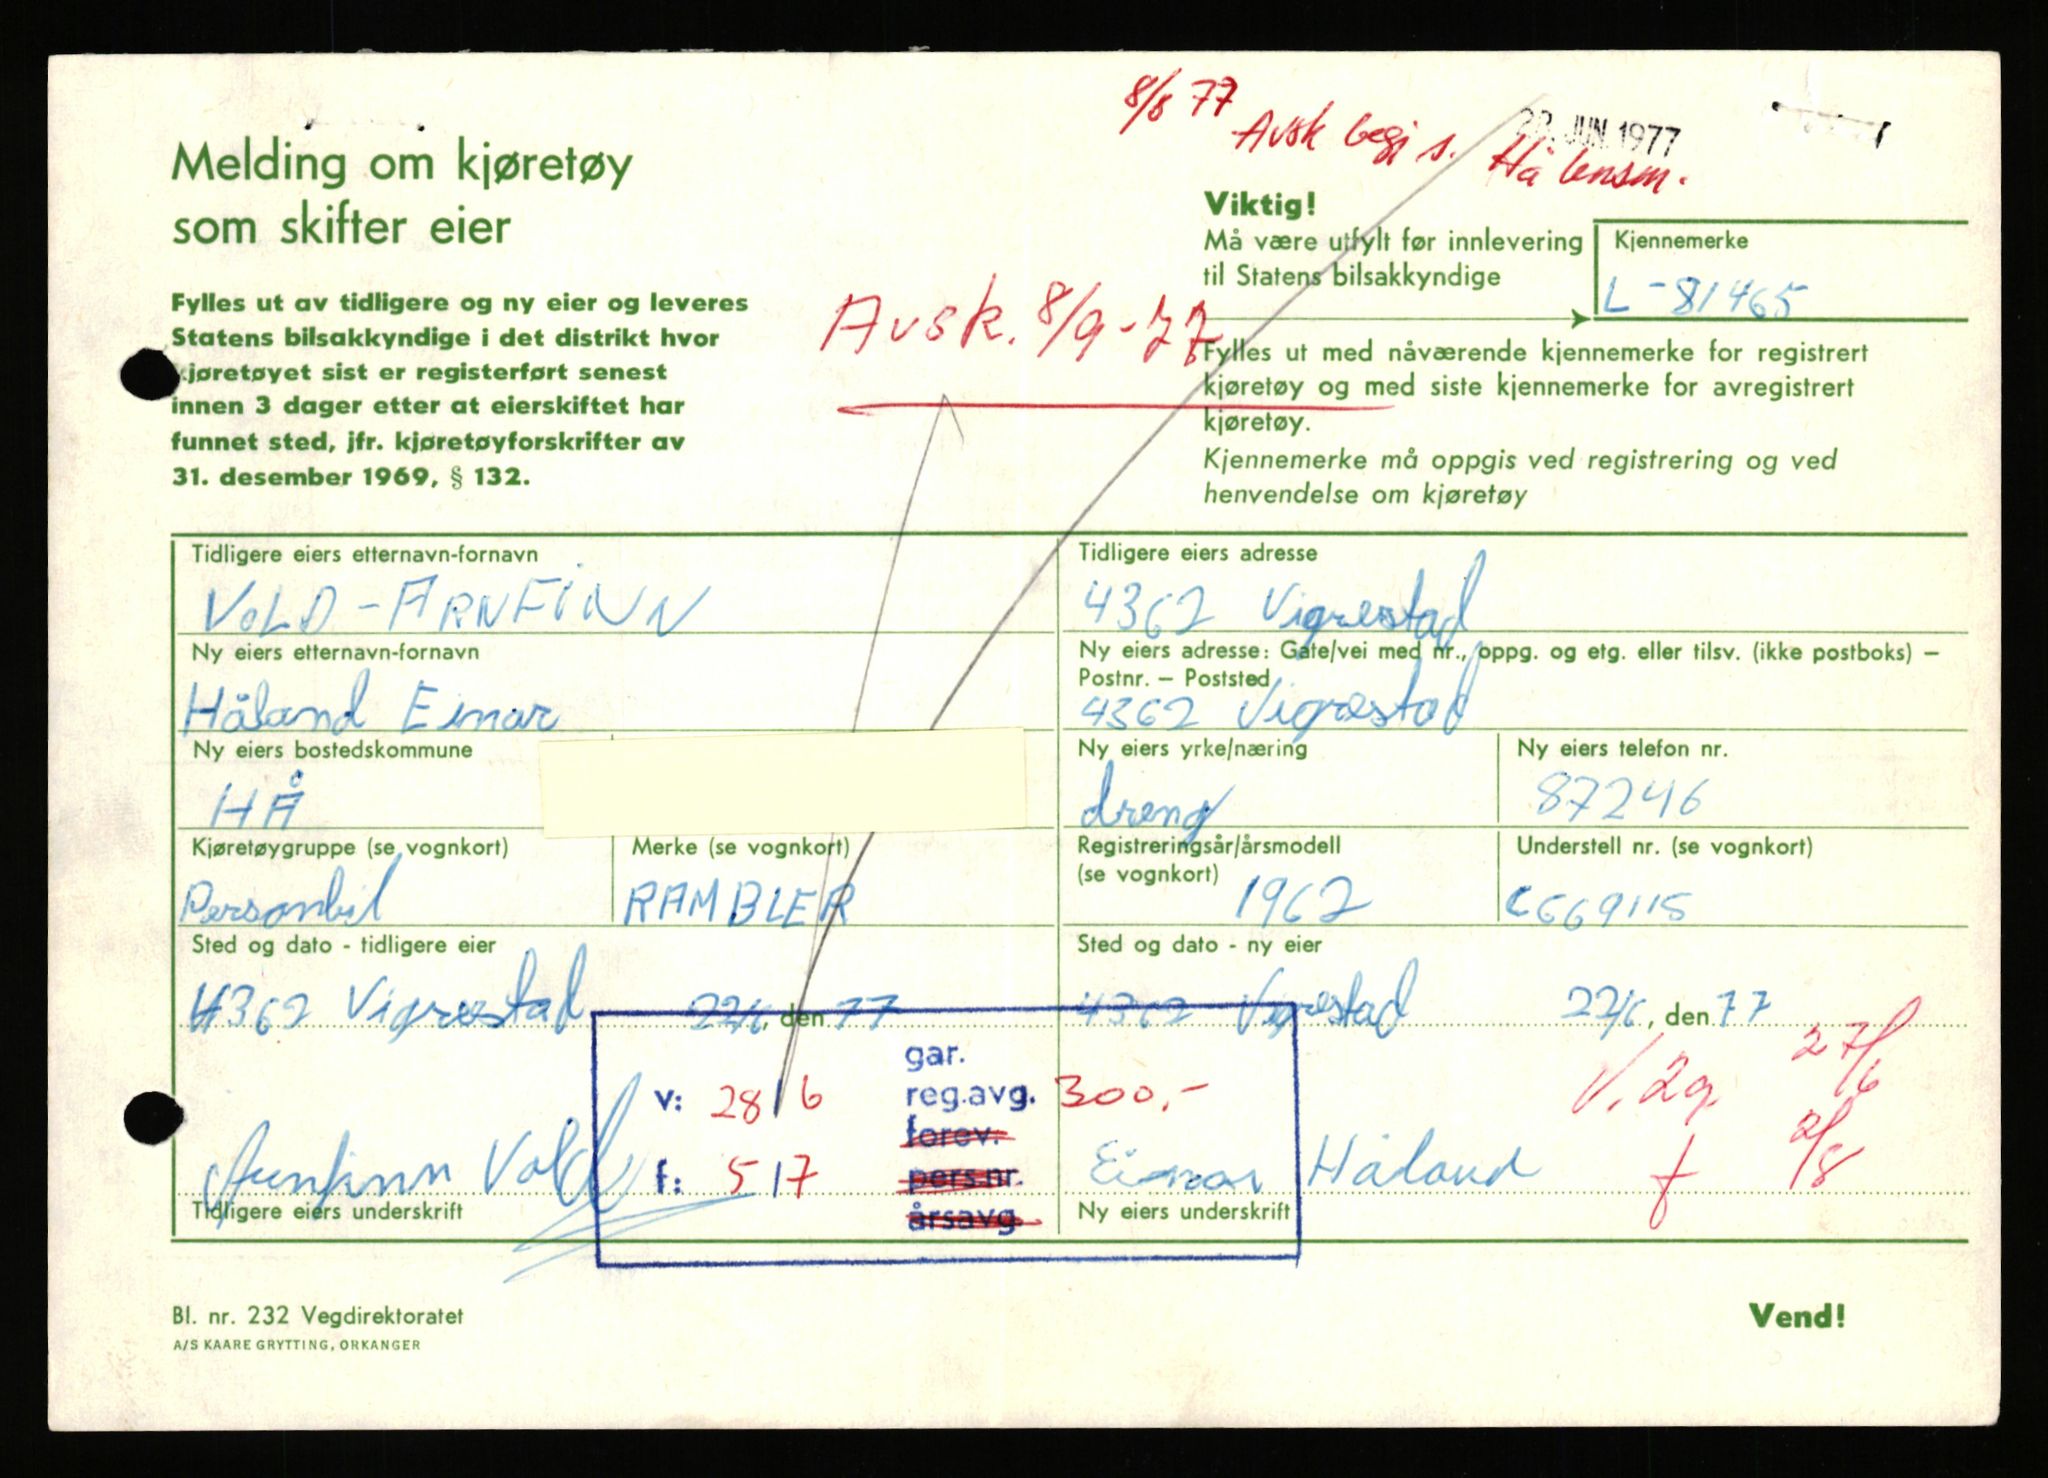 8/8 77
Avsk begj s. Hå lensm.
JUN. 1977
Melding om kjøretøy
som skifter eier
Viktig!
Må være utfylt før innlevering
til Statens bilsakkyndige
Kjennemerke
L-81465
Fylles ut av tidligere og ny eier og leveres
Statens bilsakkyndige i det distrikt hvor
kjøretøyet sist er registerført senest
innen 3 dager etter at eierskiftet har
funnet sted, jfr. kjøretøyforskrifter av
31. desember 1969, § 132.
Avsk. 8/9-77
Fylles ut med nåværende kjennemerke for registrert
kjøretøy og med siste kjennemerke for avregistrert
kjøretøy.
Kjennemerke må oppgis ved registrering og ved
henvendelse om kjøretøy
Tidligere eiers etternavn-fornavn
VOLD - ARNFINN
Tidligere eiers adresse
4362 Vigrestad
Ny eiers etternavn-fornavn
Håland Einar
Ny eiers adresse: Gate/vei med nr., oppg. og etg. eller tilsv. (ikke postboks) –
Postnr. – Poststed
4362 Vigrestad
Ny eiers bostedskommune
HÅ
Ny eiers yrke/næring
dreng
Ny eiers telefon nr.
87246
Kjøretøygruppe (se vognkort)
Personbil
Merke (se vognkort)
RAMBLER
Registreringsår/årsmodell
(se vognkort)
1962
Understell nr. (se vognkort)
C669115
Sted og dato - tidligere eier
4362 Vigrestad 22/6, den 77
Sted og dato - ny eier
4362 Vigrestad 22/6, den 77
gar.
v: 28/6 reg.avg. 300,-
forev.
f: 5/7 pers.nr.
årsavg.
V. 2g. 27/6
f 2/8
Arnfinn Vold
Tidligere eiers underskrift
Einar Håland
Ny eiers underskrift
Bl. nr. 232 Vegdirektoratet
A/S KAARE GRYTTING, ORKANGER
Vend!